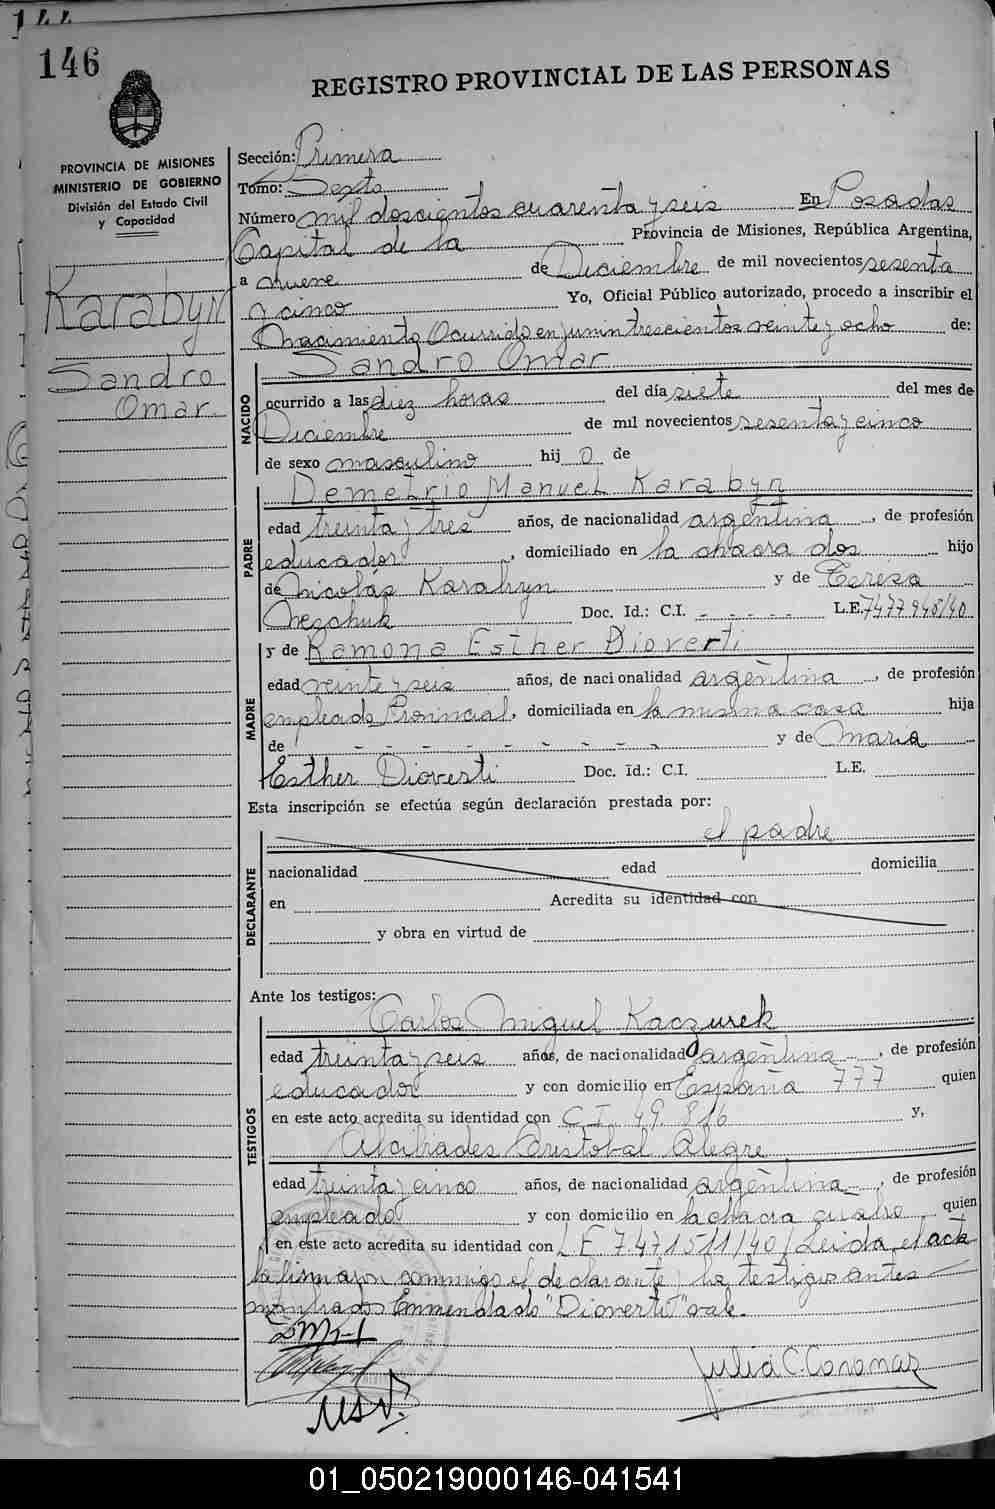 144
146
REGISTRO PROVINCIAL DE LAS PERSONAS
PROVINCIA DE MISIONES
MINISTERIO DE GOBIERNO
División del Estado Civil
y Capacidad
Karabyn
Sandro
Omar.
Sección: Primera
Tomo: Sexto
Número mil doscientos cuarenta y seis En Posadas
Capital de la Provincia de Misiones, República Argentina,
a nueve de Diciembre de mil novecientos sesenta
y cinco Yo, Oficial Público autorizado, procedo a inscribir el
Nacimiento Ocurrido en junin trescientos veinte y ocho de:
Sandro Omar
NACIDO
ocurrido a las diez horas del día siete del mes de
Diciembre de mil novecientos sesenta y cinco
de sexo masculino hij o de
Demetrio Manuel Karabyn
PADRE
edad treinta y tres años, de nacionalidad argentina, de profesión
educador, domiciliado en la chacra dos hijo
de Nicolás Karabyn y de Teresa
Nezchuk Doc. Id.: C.I. - - - - - L.E. 7477945/40
y de Ramona Esther Dioverti
MADRE
edad veinte y seis años, de nacionalidad argentina, de profesión
empleada Provincial, domiciliada en la misma casa hija
de - - - - - - - - - y de Maria
Esther Dioverti Doc. Id.: C.I. L.E.
Esta inscripción se efectúa según declaración prestada por:
el padre
DECLARANTE
nacionalidad edad domicilia
en Acredita su identidad con
y obra en virtud de
Ante los testigos:
Carlos Miguel Kaczurek
TESTIGOS
edad treinta y seis años, de nacionalidad argentina, de profesión
educador y con domicilio en España 777 quien
en este acto acredita su identidad con C.I. 49.816 y,
Alcibiades Cristobal Alegre
edad treinta y cinco años, de nacionalidad argentina, de profesión
empleado y con domicilio en la chacra cuatro quien
en este acto acredita su identidad con L E 7.471511/40 / Leida el acta
la firmaron conmigo el declarante y los testigos antes
nombrados Enmendado "Dioverti" vale.
Julia C. Coronas
01_050219000146-041541